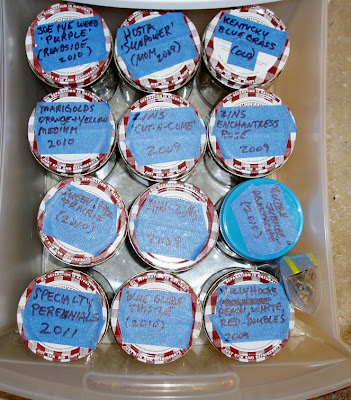 JOE PYE WEED
'PURPLE'
(ROADSIDE)
2010
HOSTA
'SUNPOWER'
(MOM, 2009)
KENTUCKY
BLUE GRASS
(OLD)
MARIGOLDS
ORANGE + YELLOW
MEDIUM
2010
ZINS
'CUT-N-COME'
2009
ZINS
ENCHANTRESS
ROSE
2009
PRAIRIE
(2010)
ZINS
2009
(2010)
SPECIALTY
PERENNIALS
2011
BLUE GLOBE
THISTLE
(2010)
HOLLYHOCK
PEACH, WHITE,
RED-DOUBLES
2009